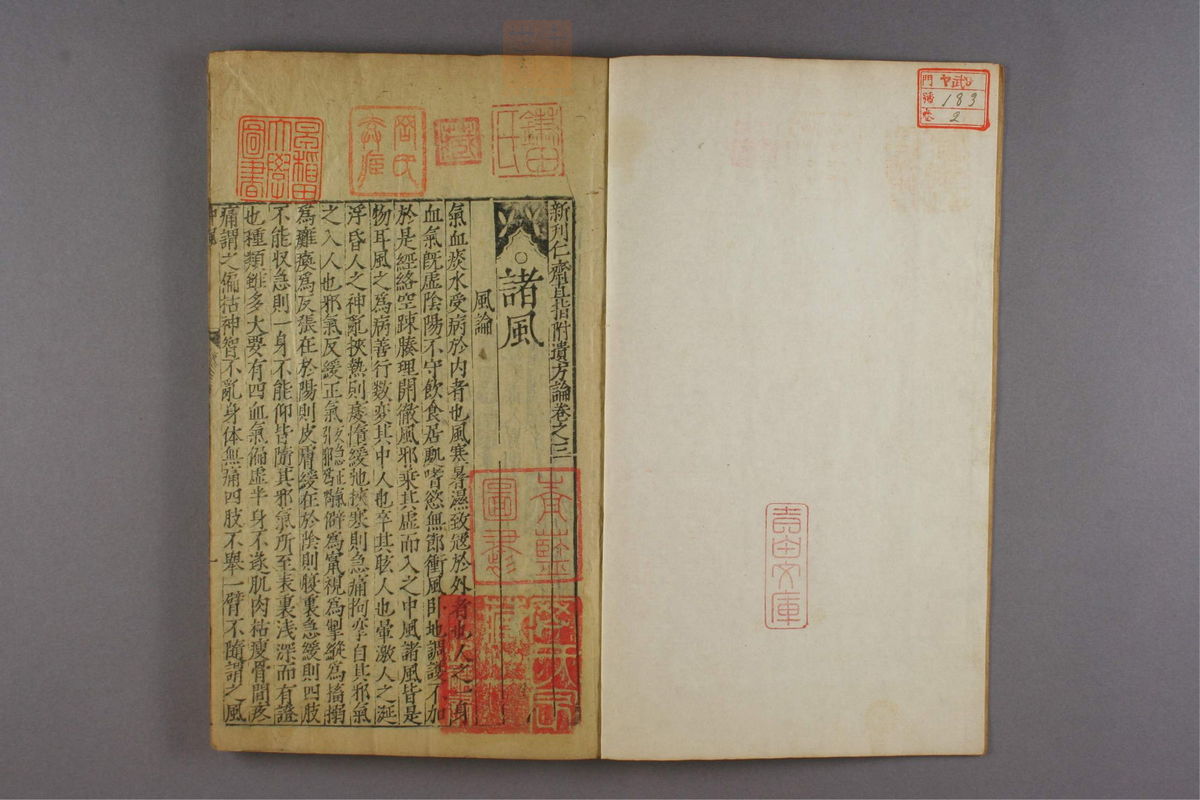 門
號 183
卷 2
吉田文庫
新刊仁齋直指附遺方論卷之三
諸風
風論
氣血痰水受病於内者也風寒暑濕致寇於外者也人之一身
血氣既虛陰陽不守飲食居處嗜慾無節衝風臥地調護不加
於是經絡空踈腠理開徹風邪乘其虛而入之中風諸風皆是
物耳風之為病善行数变其中人也卒其眩人也暈激人之涎
浮昏人之神亂挾熱則痿惰緩弛挾寒則急痛拘攣自其邪氣
之入人也邪氣反緩正氣為僻為竄視為掣縱為搐搦
為癱瘓為反張在於陽則皮膚緩在於陰則腹裏急緩則四肢
不能収急則一身不能仰皆隨其邪氣所至表裏浅深而有證
也種類雖多大要有四血氣偏虛半身不遂肌肉枯瘦骨間疼
痛謂之偏枯神智不亂身体無痛四肢不舉一臂不隨謂之風
藏
早稲田大學圖書